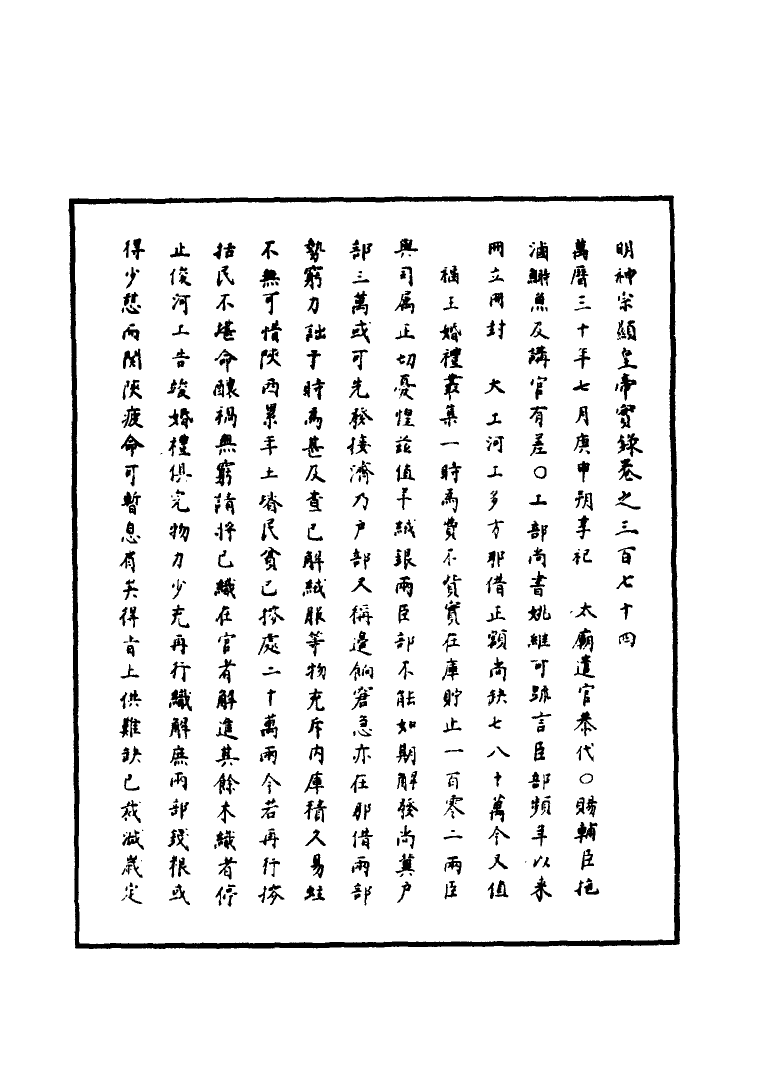 明神宗顯皇帝實錄卷之三百七十四
萬曆三十年七月庚申朔享祀　太廟遣官恭代○賜輔臣枇
滷鰣魚及講官有差○工部尚書姚繼可疏言臣部頻年以来
冊立冊封　大工河工多方那借正額尚缺七八十萬今又值
福王婚禮叢集一時為費不貲實在庫貯止一百零二兩臣
與司属正切憂惶茲值羊絨銀兩臣部不能如期解發尚冀户
部三萬或可先發接濟乃户部又稱邊餉窘急亦在那借兩部
勢窮力詘于時為甚及查已解絨服等物充斥内庫積久易蛀
不無可惜陝西累年土瘠民貧已搭處二十萬兩今若再行搭
括民不堪命釀禍無窮請将已織在官者解進其餘未織者停
止俟河工告竣婚禮俱完物力少充再行織解庶兩部錢粮或
得少愁而関陝疲命可暫息肩矣得旨上供難缺已裁減歲定